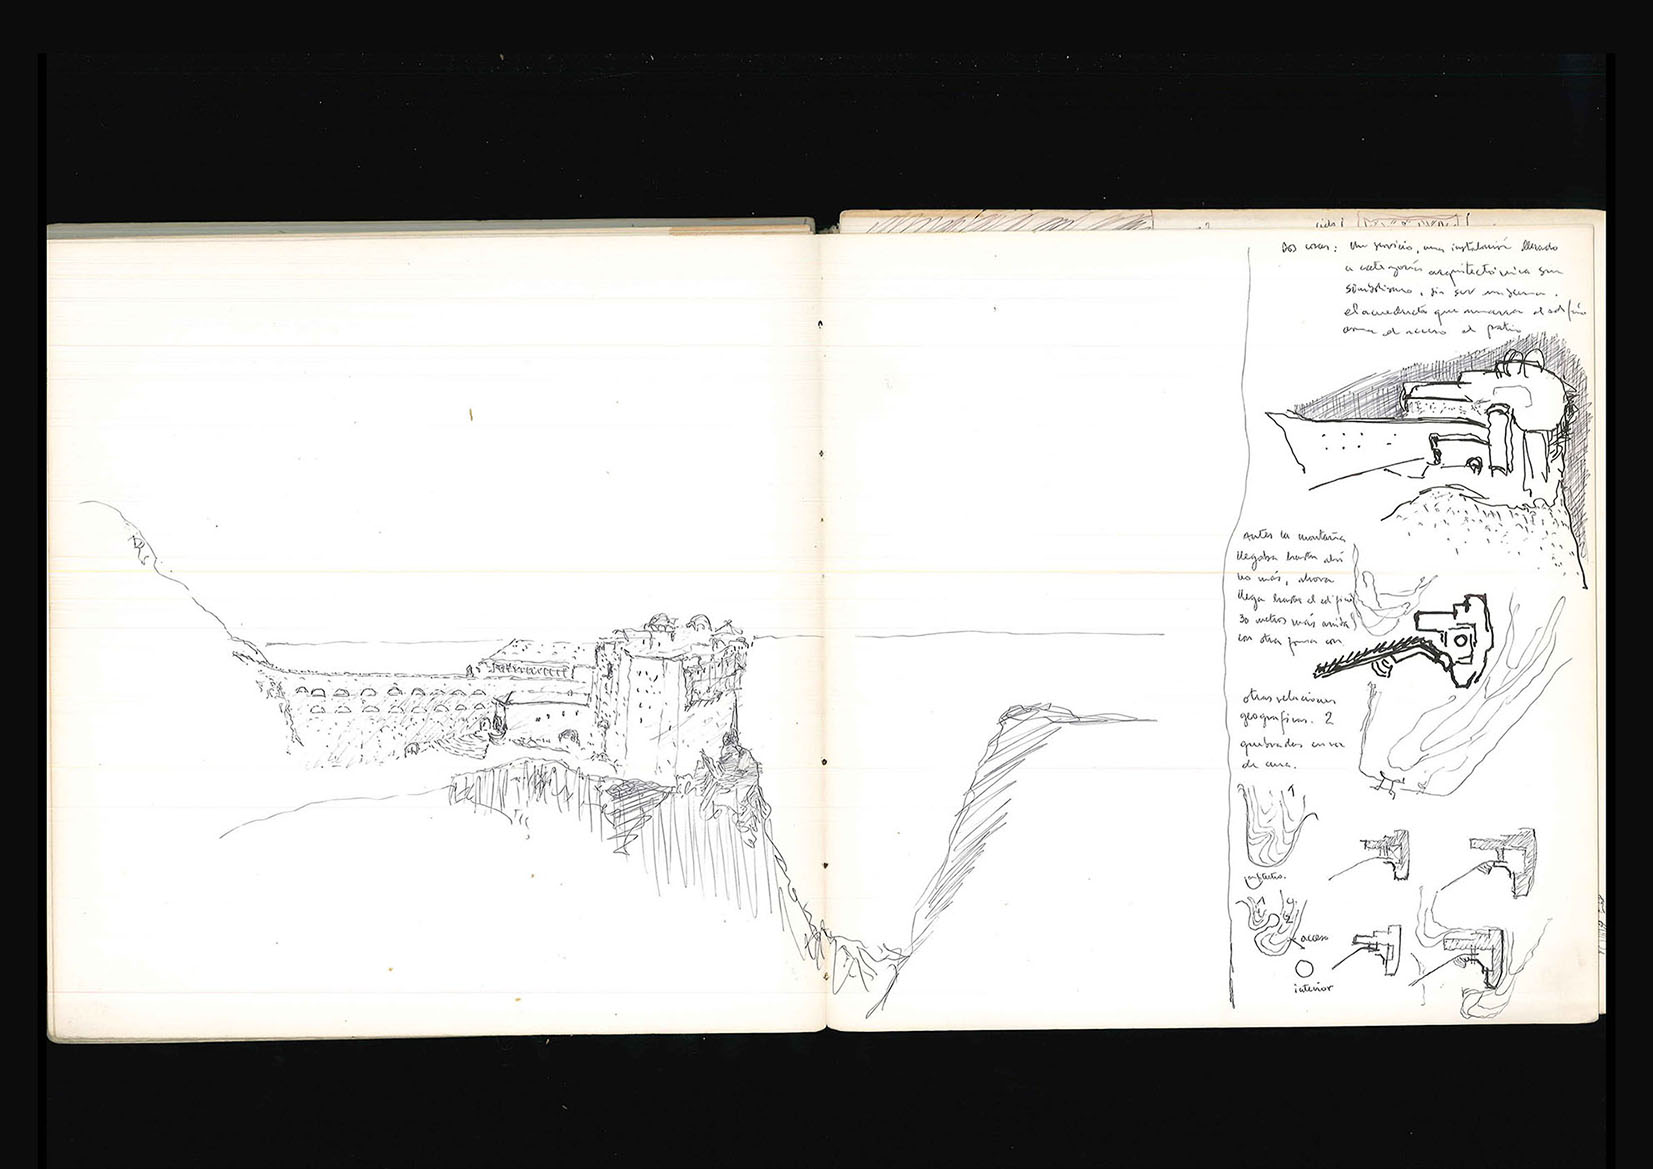 Dos cosas: Un servicio, una instalación llevado
a categoría arquitectónica sin
simbolismo, sin ser
el acueducto que amarra el edificio
arma el acceso al patio
Antes la montaña
llegaba hasta ahí
no más, ahora
llega hasta el edificio
30 metros más arriba
con otra forma con
otras relaciones
geográficas. 2
quebradas en vez
de una.
1
1
2
acceso
interior